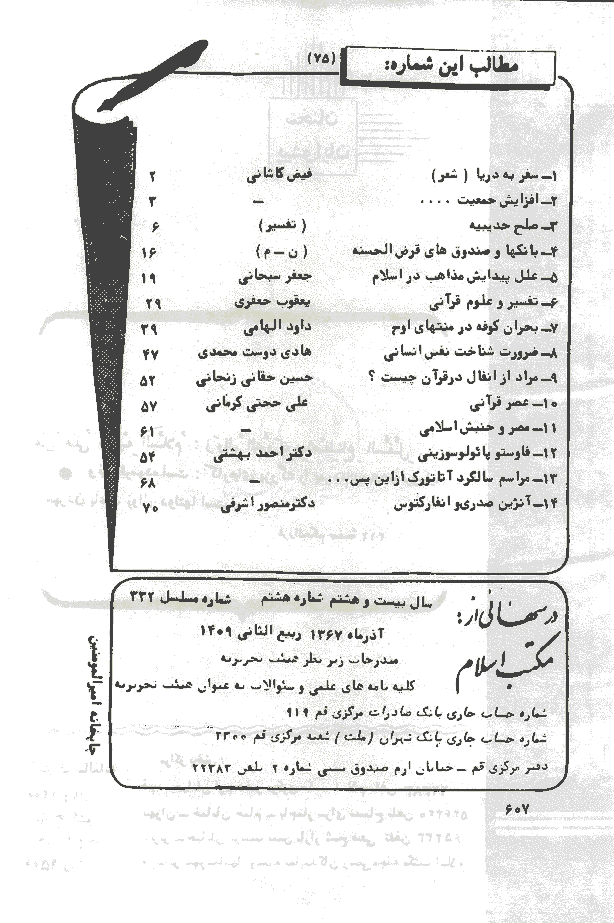 مطالب این شماره:
(۷۵)
۱ــ سفر به دریا ( شعر ) فیض کاشانی ۲
۲ــ افزایش جمعیت .... ــ ۳
۳ــ صلح حدیبیه ( تفسیر ) ۶
۴ــ بانکها و صندوق های قرض الحسنه ( ن ــ م ) ۱۶
۵ــ علل پیدایش مذاهب در اسلام جعفر سبحانی ۱۹
۶ــ تفسیر و علوم قرآنی یعقوب جعفری ۲۹
۷ــ بحران کوفه در منتهای اوج داود الهامی ۳۹
۸ــ ضرورت شناخت نفس انسانی هادی دوست محمدی ۴۷
۹ــ مراد از انفال درقرآن چیست ؟ حسین حقانی زنجانی ۵۲
۱۰ــ عصر قرآنی علی حجتی کرمانی ۵۷
۱۱ــ مصر و جنبش اسلامی ــ ۶۱
۱۲ــ فاوستو پائولوسوزینی دکتر احمد بهشتی ۵۴
۱۳ــ مراسم سالگرد آتاتورک ازاین پس... ــ ۶۸
۱۴ــ آنژین صدری و انفارکتوس دکترمنصور اشرفی ۷۰
درسهائی از:
مکتب اسلام
سال بیست و هشتم شماره هشتم شماره مسلسل ۳۳۲
آذرماه ۱۳۶۷ ربیع الثانی ۱۴۰۹
مندرجات زیر نظر هیئت تحریریه
کلیه نامه های علمی و سئوالات به عنوان هیئت تحریریه
شماره حساب جاری بانک صادرات مرکزی قم ۹۱۹
شماره حساب جاری بانک تهران ( ملت ) شعبه مرکزی قم ۲۳۰۰
دفتر مرکزی قم ــ خیابان ارم صندوق پستی شماره ۲ تلفن ۲۲۳۸۳
چاپخانه امیرالمومنین
۶۰۷